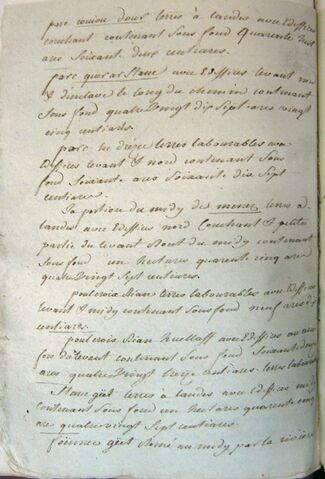 parc conion dour terres à landes avec Ediffices
couchant contenant Sous fond Quarente huit
ares Soixant deux centiares.
parc quer ar Stanc avec Ediffices levant midi
& dénclave le long du chemin contenant
Sous fond quatre Vingt dix Sept ares vingt
cinq centiares.
parc terres labourables avec
Ediffices levant & nord contenant Sous
fond Soixante ares Soixante dix Sept
centiares.
Sa portion du midy de menez terres à
landes avec Ediffices nord Couchant & petite
partie du levant du midy contenant
Sous fond un hectares quarente cinq ares
quatre Vingt Sept centiares.
poulcrois Bian terres labourables avec Ediffices
levant & midy contenant Sous fond neuf ares dix
centiares.
poulcrois Bian avec Ediffices au
du levant contenant Sous fond Soixante
ares quatre Vingt treize centiares. terres labourables
Stanc güet terres à landes avec Ediffices midy
contenant Sous fond un hectares quarente cinq
ares quatre vingt Sept centiares.
foënnec güet au midy par la rivière